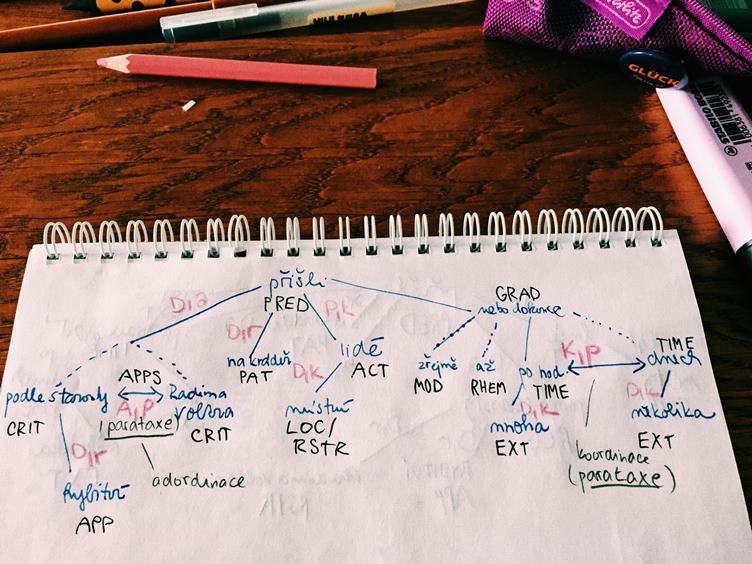 GLÜCK
STABILO BOSS
přišli
PRED
GRAD
nebo dokonce
D,a
D,r
D,k
K,P
TIME
dnech
lidé
ACT
na krádež
PAT
zřejmě
MOD
až
RHEM
po hod
TIME
APPS
podle starosty
CRIT
A,P
(parataxe)
Radima
Volbra
CRIT
D,k
místní
LOC/
RSTR
D,k
mnoha
EXT
D,k
několika
EXT
koordinace
(parataxe)
D,r
adordinace
Rybitví
APP